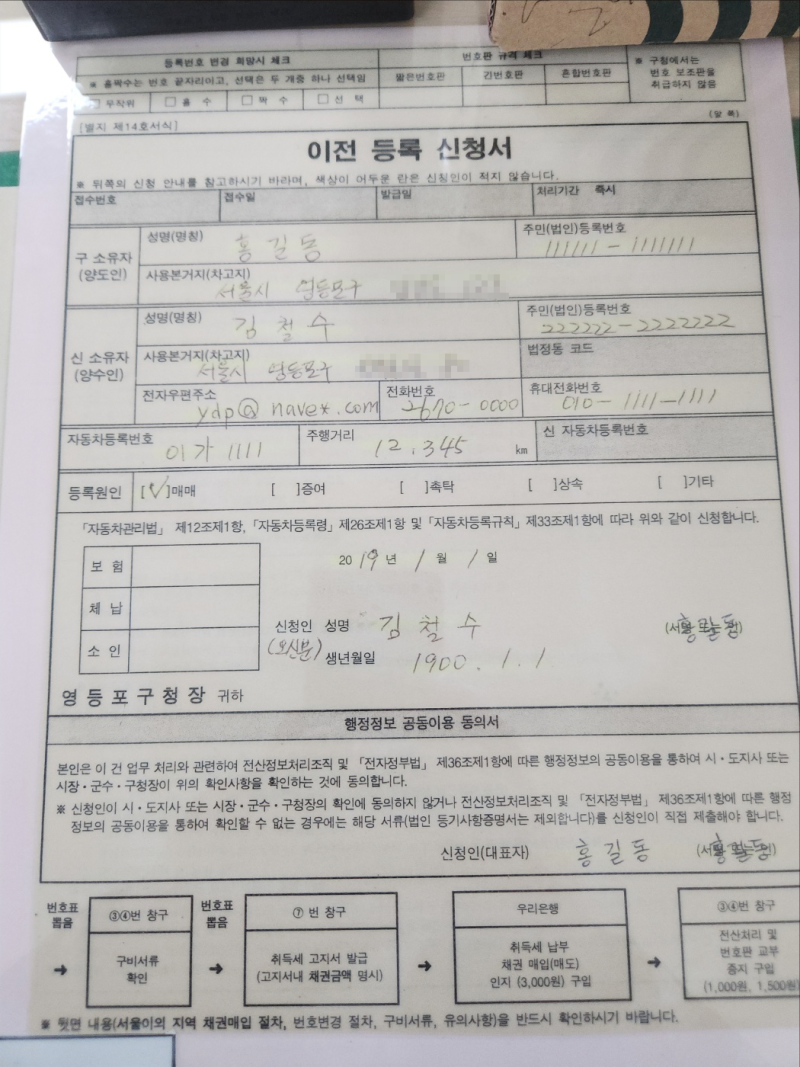 등록번호 변경 희망시 체크
번호판 규격 체크
※ 구청에서는
번호 보조판을
취급하지 않음
※ 홀짝수는 번호 끝자리이고, 선택은 두 개중 하나 선택임
짧은번호판 긴번호판 혼합번호판
무작위 □ 홀 수 □ 짝 수 □ 선 택
[별지 제14호서식]
(앞 쪽)
이전 등록 신청서
※ 뒤쪽의 신청 안내를 참고하시기 바라며, 색상이 어두운 란은 신청인이 적지 않습니다.
접수번호 접수일 발급일 처리기간 즉시
구 소유자
(양도인)
성명(명칭) 홍길동
주민(법인)등록번호
111111-1111111
사용본거지(차고지)
서울시 영등포구
신 소유자
(양수인)
성명(명칭) 김철수
주민(법인)등록번호
222222-2222222
사용본거지(차고지)
서울시 영등포구
법정동 코드
전자우편주소
ydp@ nave*.com
전화번호
2670-0000
휴대전화번호
010-1111-1111
자동차등록번호
01가 1111
주행거리
12,345 km
신 자동차등록번호
등록원인 [√]매매 [ ]증여 [ ]촉탁 [ ]상속 [ ]기타
「자동차관리법」 제12조제1항, 「자동차등록령」 제26조제1항 및 「자동차등록규칙」 제33조제1항에 따라 위와 같이 신청합니다.
보 험
체 납
소 인
2019년 1월 1일
신청인 성명 김철수
(오신분) 생년월일 1900.1.1
영등포구청장 귀하
행정정보 공동이용 동의서
본인은 이 건 업무 처리와 관련하여 전산정보처리조직 및 「전자정부법」 제36조제1항에 따른 행정정보의 공동이용을 통하여 시·도지사 또는
시장·군수·구청장이 위의 확인사항을 확인하는 것에 동의합니다.
※ 신청인이 시·도지사 또는 시장·군수·구청장의 확인에 동의하지 않거나 전산정보처리조직 및 「전자정부법」 제36조제1항에 따른 행정
정보의 공동이용을 통하여 확인할 수 없는 경우에는 해당 서류(법인 등기사항증명서는 제외합니다)를 신청인이 직접 제출해야 합니다.
신청인(대표자) 홍길동
번호표
뽑음
➔
③④번 창구
구비서류
확인
번호표
뽑음
➔
⑦ 번 창구
취득세 고지서 발급
(고지서내 채권금액 명시)
➔
우리은행
취득세 납부
채권 매입(매도)
인지 (3,000원) 구입
➔
③④번 창구
전산처리 및
번호판 교부
증지 구입
(1,000원, 1,500원)
※ 뒷면 내용(서울이외 지역 채권매입 절차, 번호변경 절차, 구비서류, 유의사항)을 반드시 확인하시기 바랍니다.